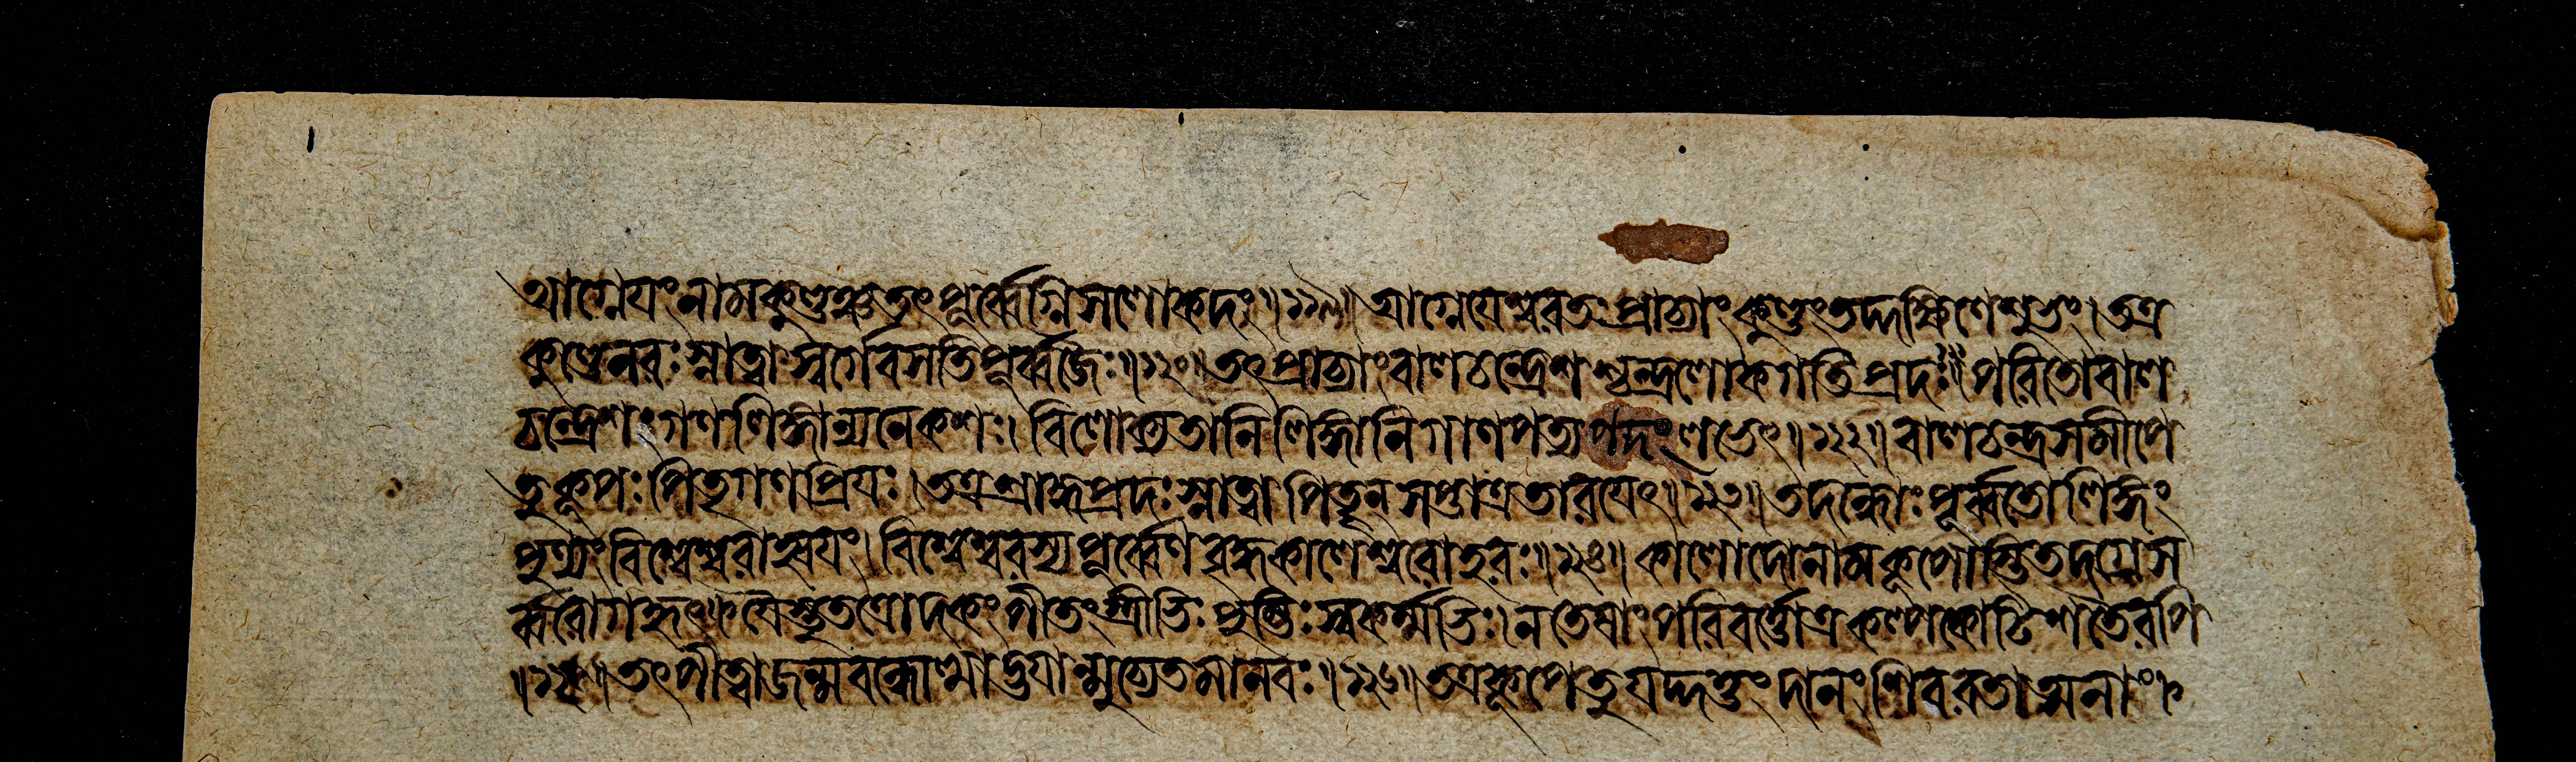 আগ্নেযং নাম কুণ্ডঞ্চ তৎপূর্ব্বেগ্নিসলোকদং ॥১১৯॥ আগ্নেযেশ্বরতঃ প্রাচ্যাং কুণ্ডং তদ্দক্ষিণে শুভং । তত্র
কুণ্ডে নরঃ স্নাত্বা স্বর্গে বসতি পূর্ব্বজৈঃ ॥১২০॥ তৎপ্রাচ্যাং বালচন্দ্রেশশ্চন্দ্রলোকগতিপ্রদঃ ॥ পরিতো বাল
চন্দ্রেশং গণলিঙ্গান্যনেকশঃ । বিলোক্য তানি লিঙ্গানি গাণপত্যপদং লভেৎ ॥১২২॥ বালচন্দ্রসমীপে
তু কূপঃ পিতৃগণপ্রিযঃ । তত্র শ্রাদ্ধপ্রদঃ স্নাত্বা পিতৄন্ সপ্তাত্র তারযেৎ ॥১২৩॥ তদন্ধোঃ পূর্ব্বতো লিঙ্গং
পুণ্যং বিশ্বেশ্বরাহ্বযং । বিশ্বেশ্বরস্য পূর্ব্বেণ বৃদ্ধকালেশ্বরো হরঃ ॥১২৪॥ কালোদো নাম কূপোস্তি তদগ্রে স
র্ব্বরোগহৃৎ । যৈস্তু তত্রোদকং পীতং স্ত্রীভিঃ পুম্ভিঃ স্বকর্ম্মভিঃ । ন তেষাং পরিবর্ত্তোত্র কল্পকোটিশতৈরপি
॥১২৫॥ তৎপীত্বা জন্মবন্ধোত্থাদ্ভযান্মুচ্যেত মানবঃ ॥১২৬॥ তত্র কূপে তু যদ্দত্তং দানং শিবরতাত্মনাং ।